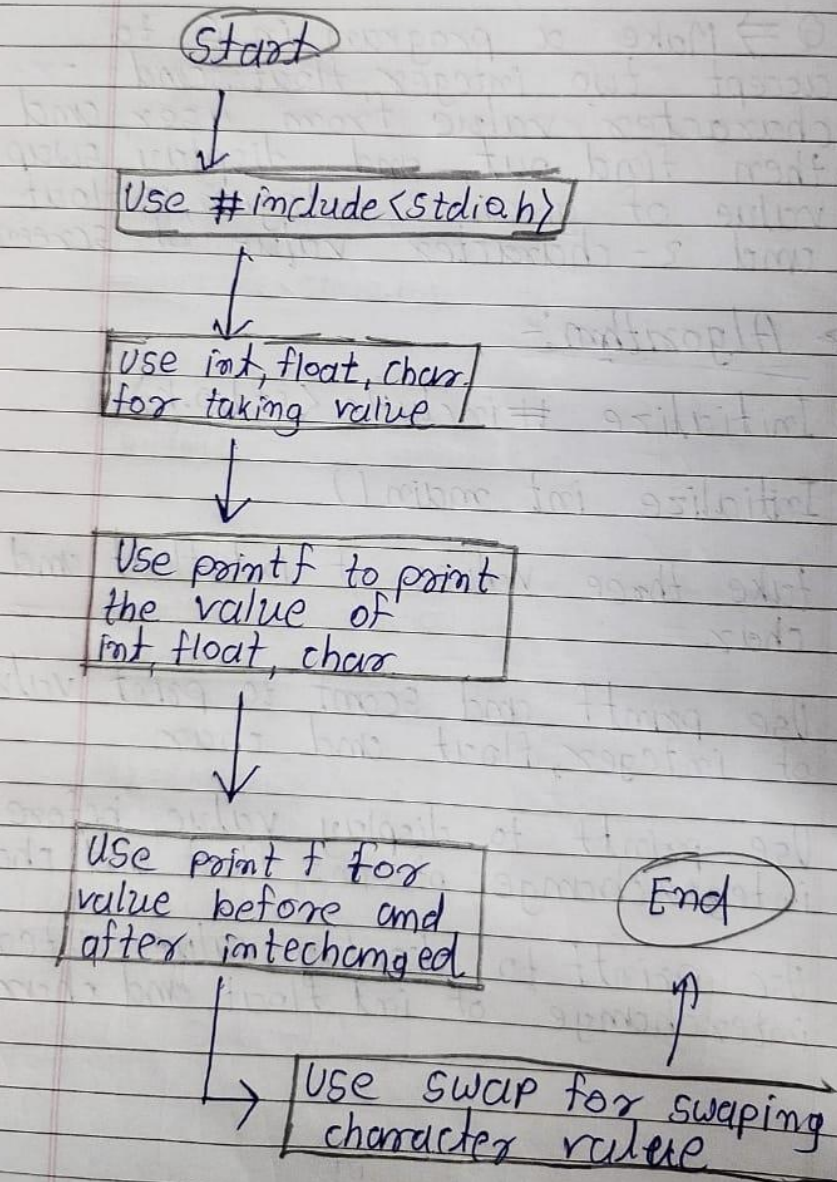 Start
Use #include<stdio.h>
Use int, float, char.
for taking value
Use printf to print
the value of
int, float, char
Use print f for
value before and
after intechanged
Use swap for swaping
character value
End